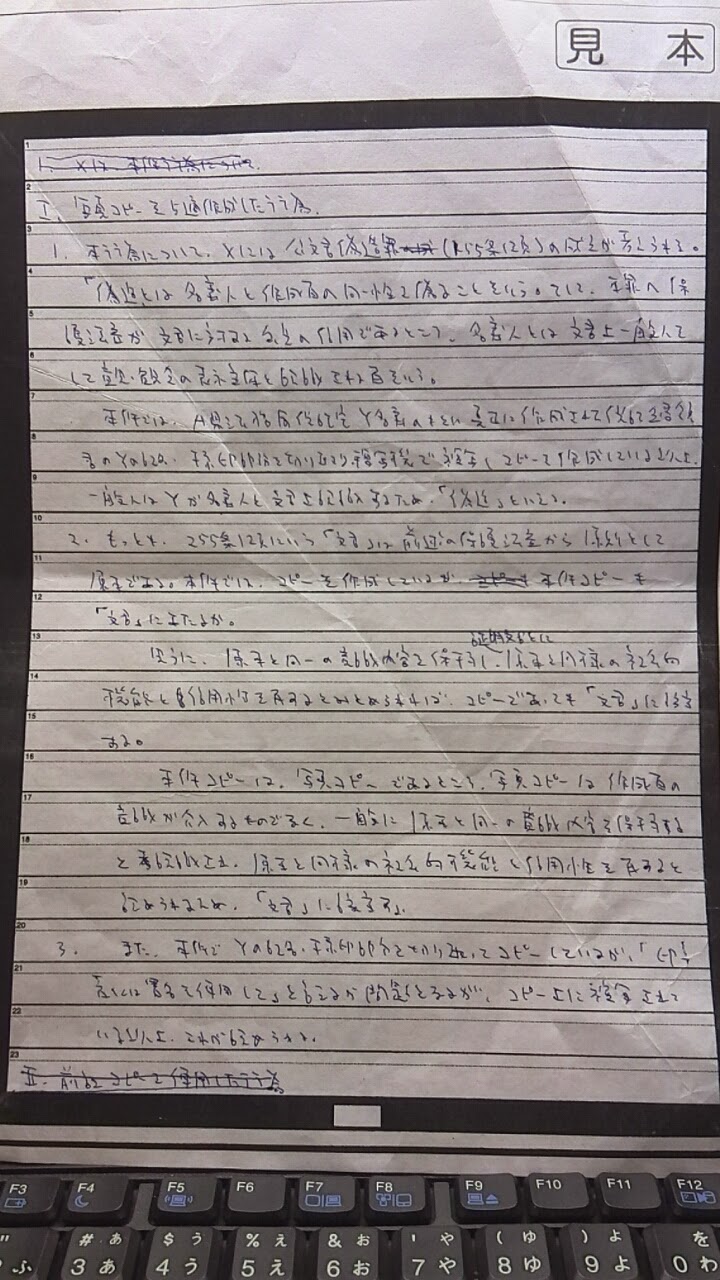 見 本
1
1. Xは、本件行為について。
2
I. 写真コピーを5通作成した行為。
3
1. 本行為について、Xには公文書偽造罪(155条1項)の成立が考えられる。
4
「偽造」とは名義人と作成者の同一性を偽ることをいう。そして、本罪の保
5
護法益が文書に対する公共の信用であるところ、名義人とは文書上一般人を
6
して意思・観念の表示主体と認識される者をいう。
7
本件では、 Y名義の 真正に作成された
8
書のYの記名・ 印部分を切り取り複写機で複写しコピーを作成している以上、
9
一般人はYが名義人と文書上認識するため、「偽造」といえる。
10
2. もっとも、255条1項にいう「文書」は前述の保護法益から原則として
11
原本である。本件では、コピーを作成しているが、 本件コピーも
12
「文書」にあたるか。
13
思うに、原本と同一の意識内容を保有し、証明文書として原本と同様の社会的
14
機能と信用性を有するとみとめられれば、コピーであっても「文書」に該当
15
する。
16
本件コピーは、写真コピーであるところ、写真コピーは作成者の
17
意識が介入するものでなく、一般に原本と同一の意識内容を保有する
18
と 認識され、原本と同様の社会的機能と信用性を有すると
19
認められるため、「文書」に該当する。
20
3. また、本件でYの記名・ 印部分を切り取ってコピーしているが、「印章
21
若しくは署名を使用して」と言えるか問題となるが、コピー上に複写されて
22
いる以上、これが認められる。
23
II. 前記コピーを使用した行為
F3 F4 F5 F6 F7 F8 F9 F10 F11 F12
" ふ # あ 3 あ $ う 4 う % え 5 え & お 6 お ' や 7 や ( ゆ 8 ゆ ) よ 9 よ を 0 わ